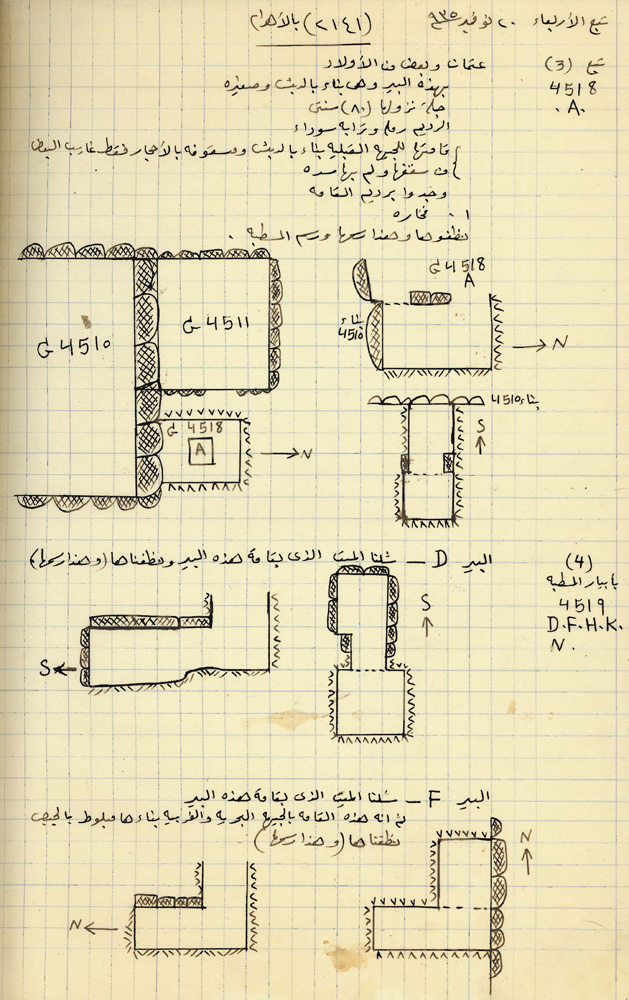 تبع الأربعاء ٢٠ نوفمبر ٩٣٥ (٢١٤١) بالأهرام
تبع (3)
4518
A.
عثمان وبعض من الأولاد
بهذه البير وهى بناء بالدبش وصغيره
جملة نزولها (٨٠) سنتى
الرديم رمل وترابه سوداء
قامتها للجهه القبليه بناء بالدبش ومسقوفه بالأحجار فقط غايب البعض
من سقفها ولم بها سده
وجدوا برديم القامه
١٠ فخاره
نظفوها وهذا رسمها ورسم المسطبه .
G 4510
G 4511
G 4518
A
N
G 4518
A
بناء 4510
N
بناء 4510
S
(4)
بأبيار المسطبه
4519
D.F.H.K.
N.
البير D — شلنا الميت الذى بقامة هذه البير ونظفناها (وهذا رسمها)
S
S
البير F — شلنا الميت الذى بقامة هذه البير
ثم انه هذه القامه بالجهه البحريه والغربيه بناءها مبلوط بالجبص
نظفناها (وهذا رسمها)
N
N